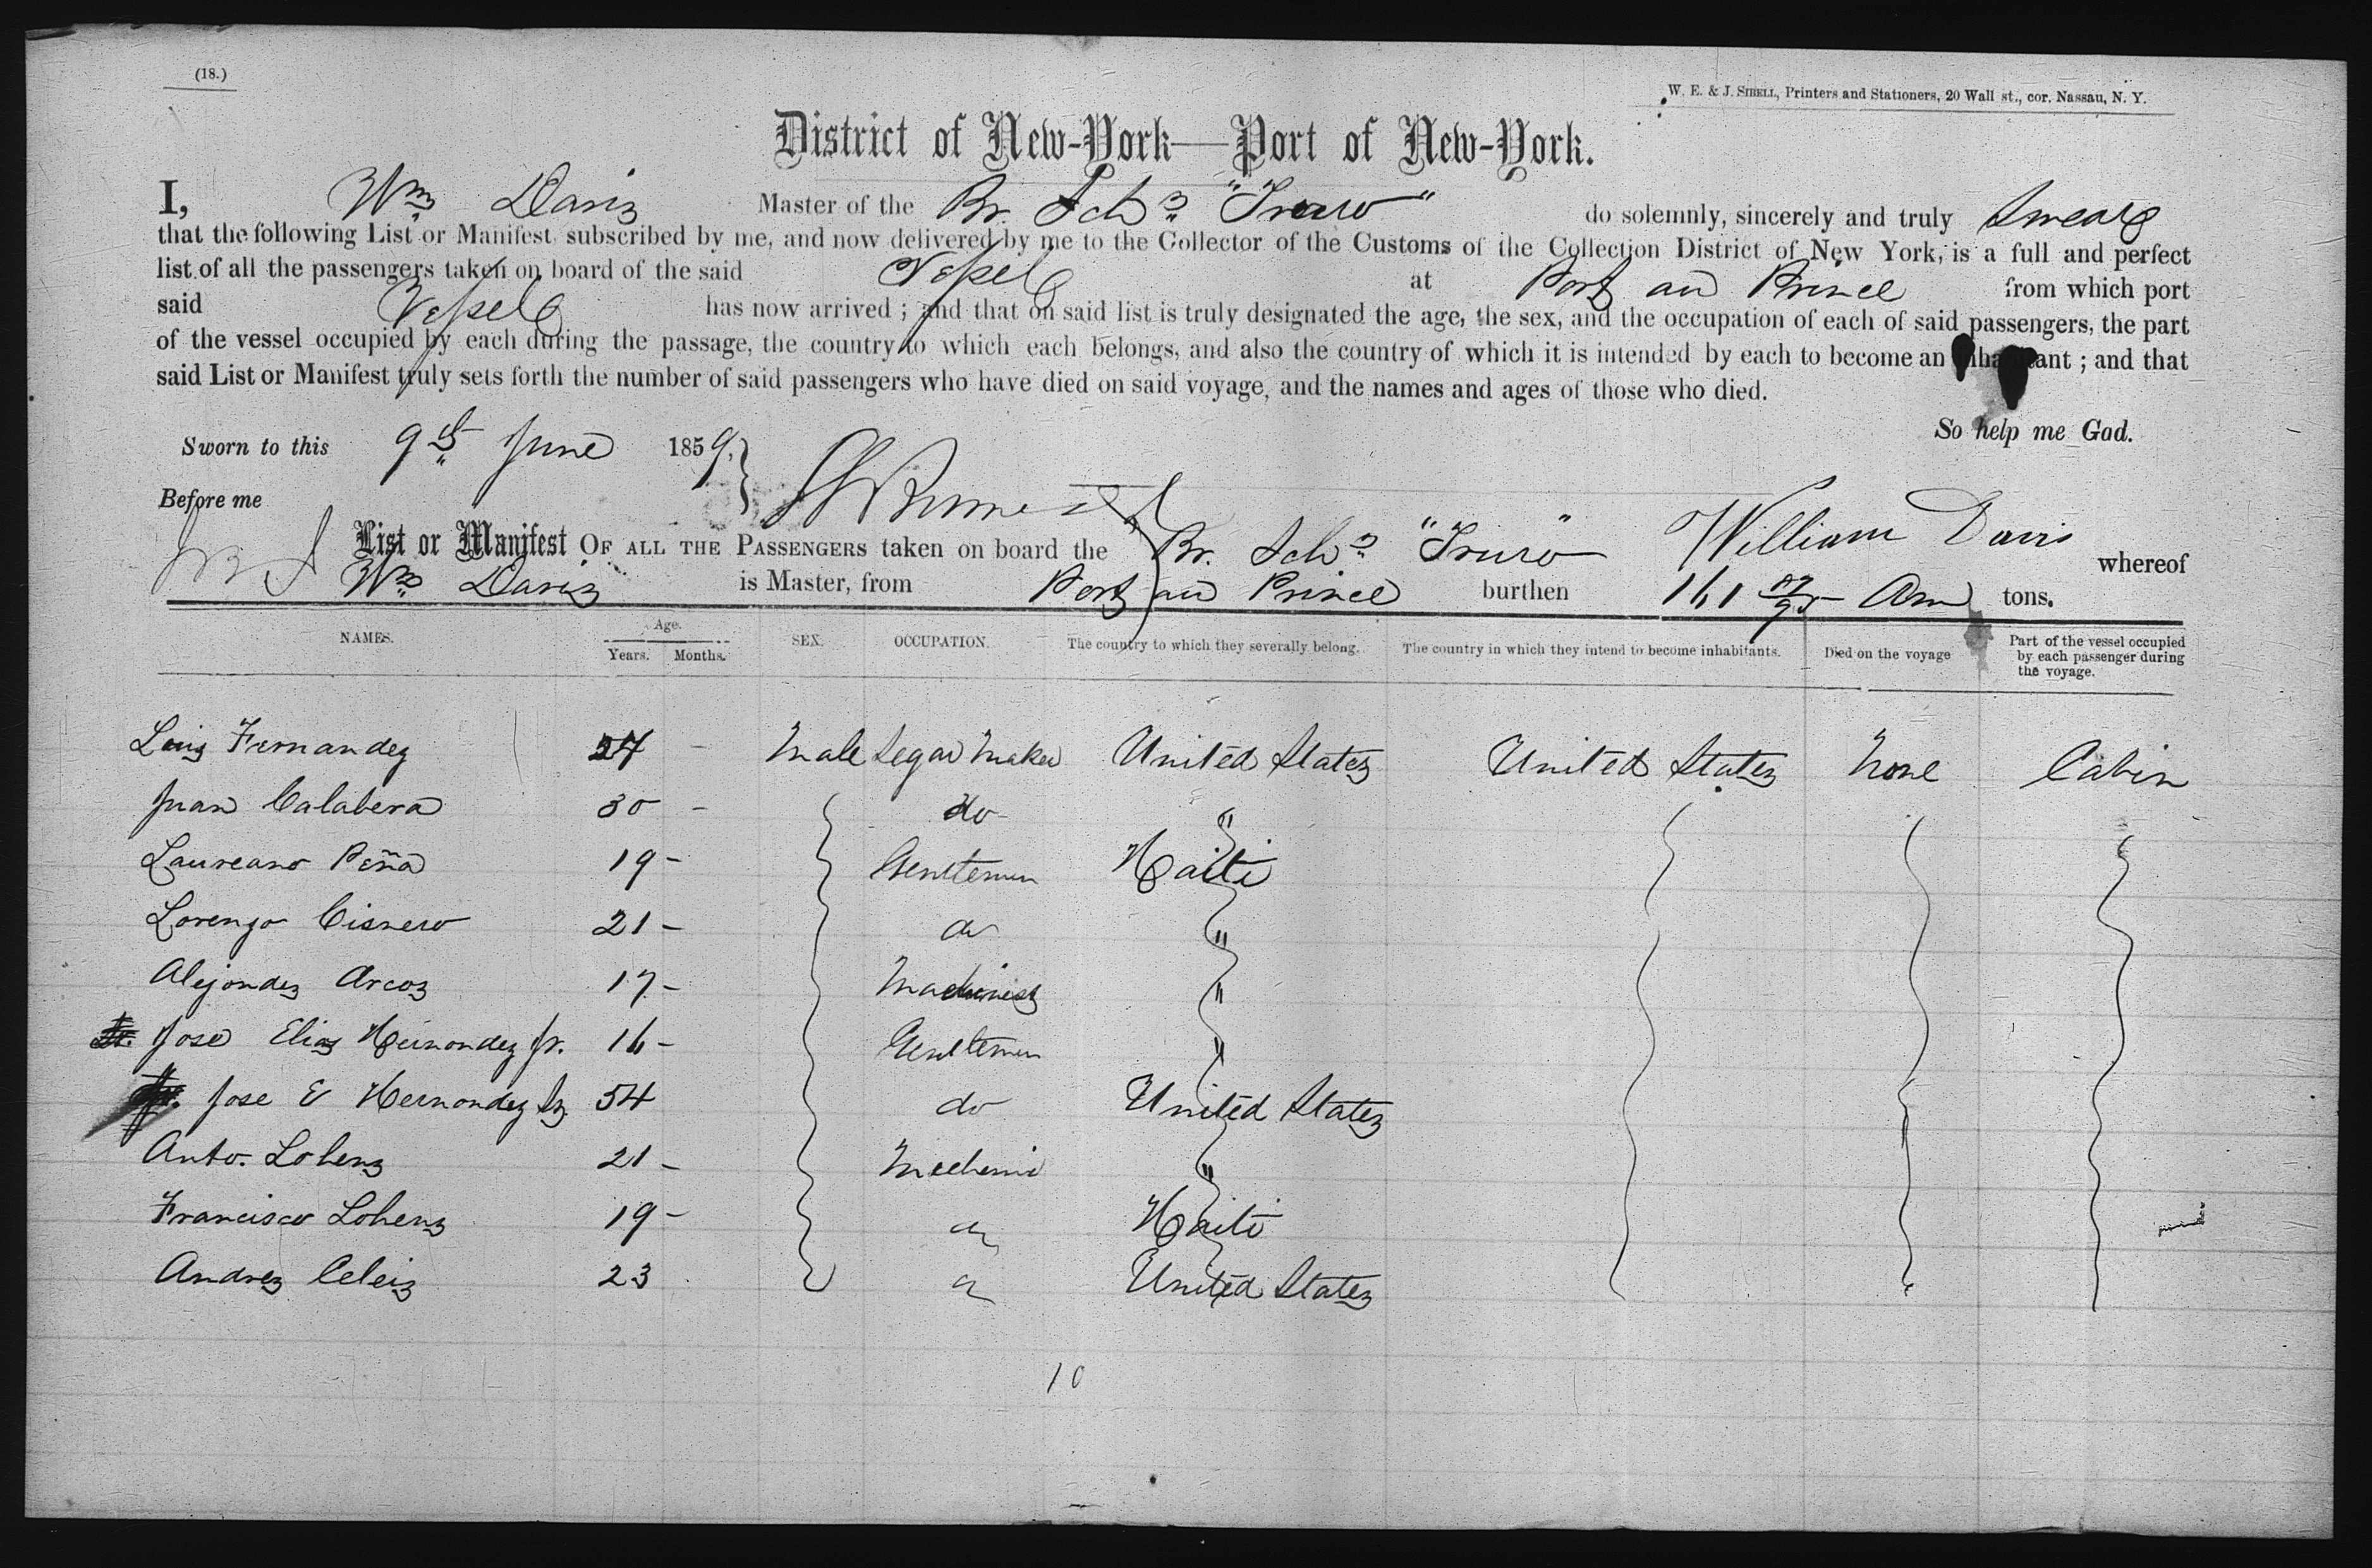 (18.)
W. E. & J. SIBELL, Printers and Stationers, 20 Wall st., cor. Nassau, N. Y.
District of New-York—Port of New-York.
I, Wm Davis Master of the Br. Schr "Truro" do solemnly, sincerely and truly Swear
that the following List or Manifest subscribed by me, and now delivered by me to the Collector of the Customs of the Collection District of New York, is a full and perfect
list of all the passengers taken on board of the said Vessel at Port au Prince from which port
said Vessel has now arrived ; and that on said list is truly designated the age, the sex, and the occupation of each of said passengers, the part
of the vessel occupied by each during the passage, the country to which each belongs, and also the country of which it is intended by each to become an inhabitant ; and that
said List or Manifest truly sets forth the number of said passengers who have died on said voyage, and the names and ages of those who died.
So help me God.
Sworn to this 9th June 1859.
Before me
William Davis
List or Manifest OF ALL THE PASSENGERS taken on board the Br. Schr "Truro" whereof
Wm Davis is Master, from Port au Prince burthen 161 /95 Am tons.
NAMES. Age. Years. Months. SEX. OCCUPATION. The country to which they severally belong. The country in which they intend to become inhabitants. Died on the voyage Part of the vessel occupied by each passenger during the voyage.
Luis Fernandez 24 - Male Segar Maker United States United States None Cabin
Juan Calabera 30 - do "
Laureano Peña 19 - Gentlemen Haiti
Lorenzo Cisnero 21 - do "
Alejandez Arcos 17 - Machinist "
Jose Elias Hernandez Jr. 16 - Gentlemen "
Jose E Hernandez Sr 54 do United States
Anto. Lohens 21 - Mechanic "
Francisco Lohens 19 - do Haiti
Andres Celeis 23 do United States
10